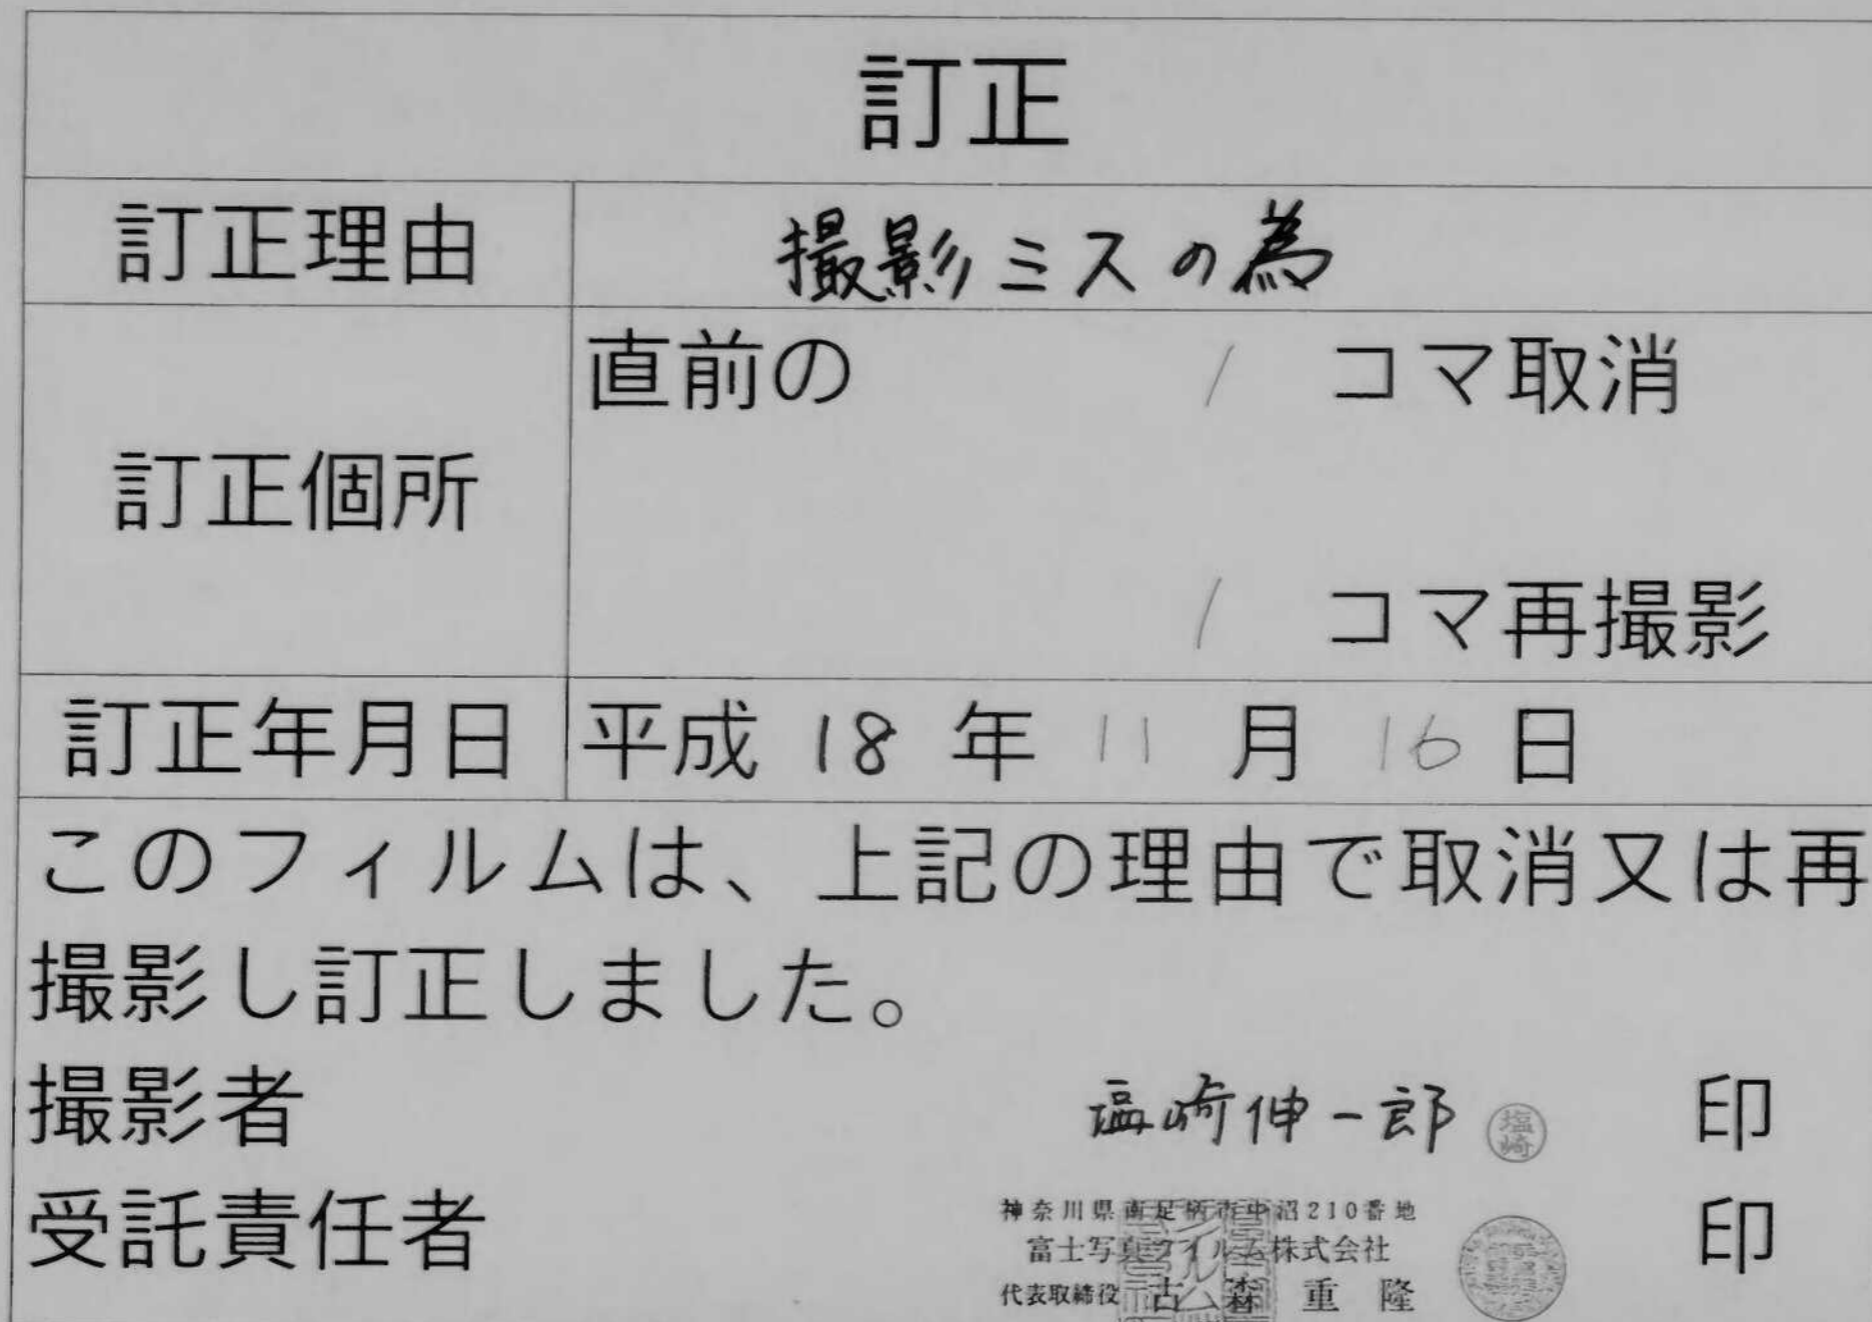 訂正
訂正理由 撮影ミスの為
訂正個所 直前の 1 コマ取消
1 コマ再撮影
訂正年月日 平成 18 年 11 月 16 日
このフィルムは、上記の理由で取消又は再
撮影し訂正しました。
撮影者 塩崎伸一郎 塩崎 印
受託責任者 印
神奈川県南足柄市中沼210番地
富士写真フイルム株式会社
代表取締役 古森重隆